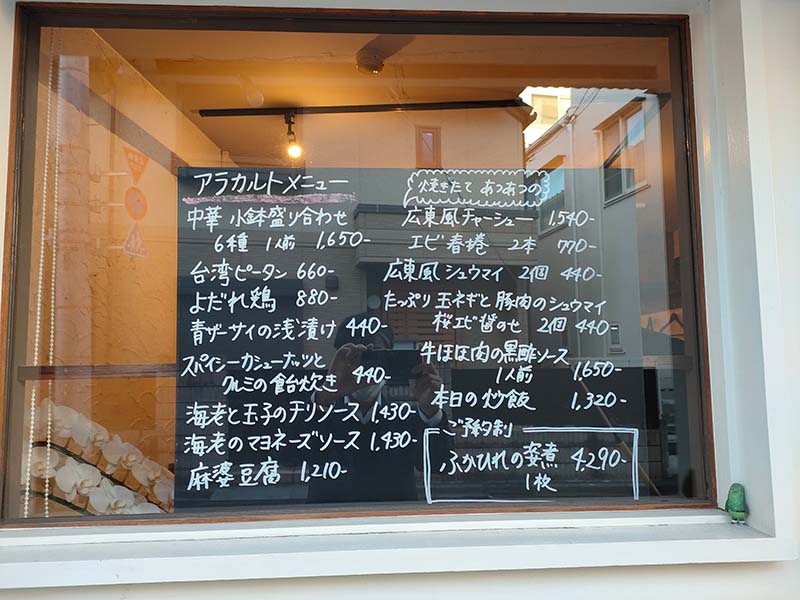 アラカルトメニュー
中華 小鉢盛り合わせ
6種 1人前 1,650-
台湾ピータン 660-
よだれ鶏 880-
青ザーサイの浅漬け 440-
スパイシーカシューナッツと
クルミの飴炊き 440-
海老と玉子のチリソース 1,430-
海老のマヨネーズソース 1,430-
麻婆豆腐 1,210-
焼きたて あつあつの
広東風チャーシュー 1,540-
エビ春捲 2本 770-
広東風シュウマイ 2個 440-
たっぷり玉ネギと豚肉のシュウマイ
桜エビ醤のせ 2個 440-
牛ほほ肉の黒酢ソース
1人前 1,650-
本日の炒飯 1,320-
ご予約制
ふかひれの姿煮 4,290-
1枚